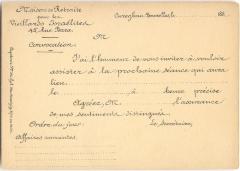 Maison de Retraite
pour les
Vieillards Israélites
Convocation.
M
J'ai l'honneur de vous inviter à vouloir
assister à la prochaine séance qui aura
lieu
le à heure précise
Agréez, M l'assurance
de mes sentiments distingués.
Ordre du jour Le Secrétaire,
Affaires courantes